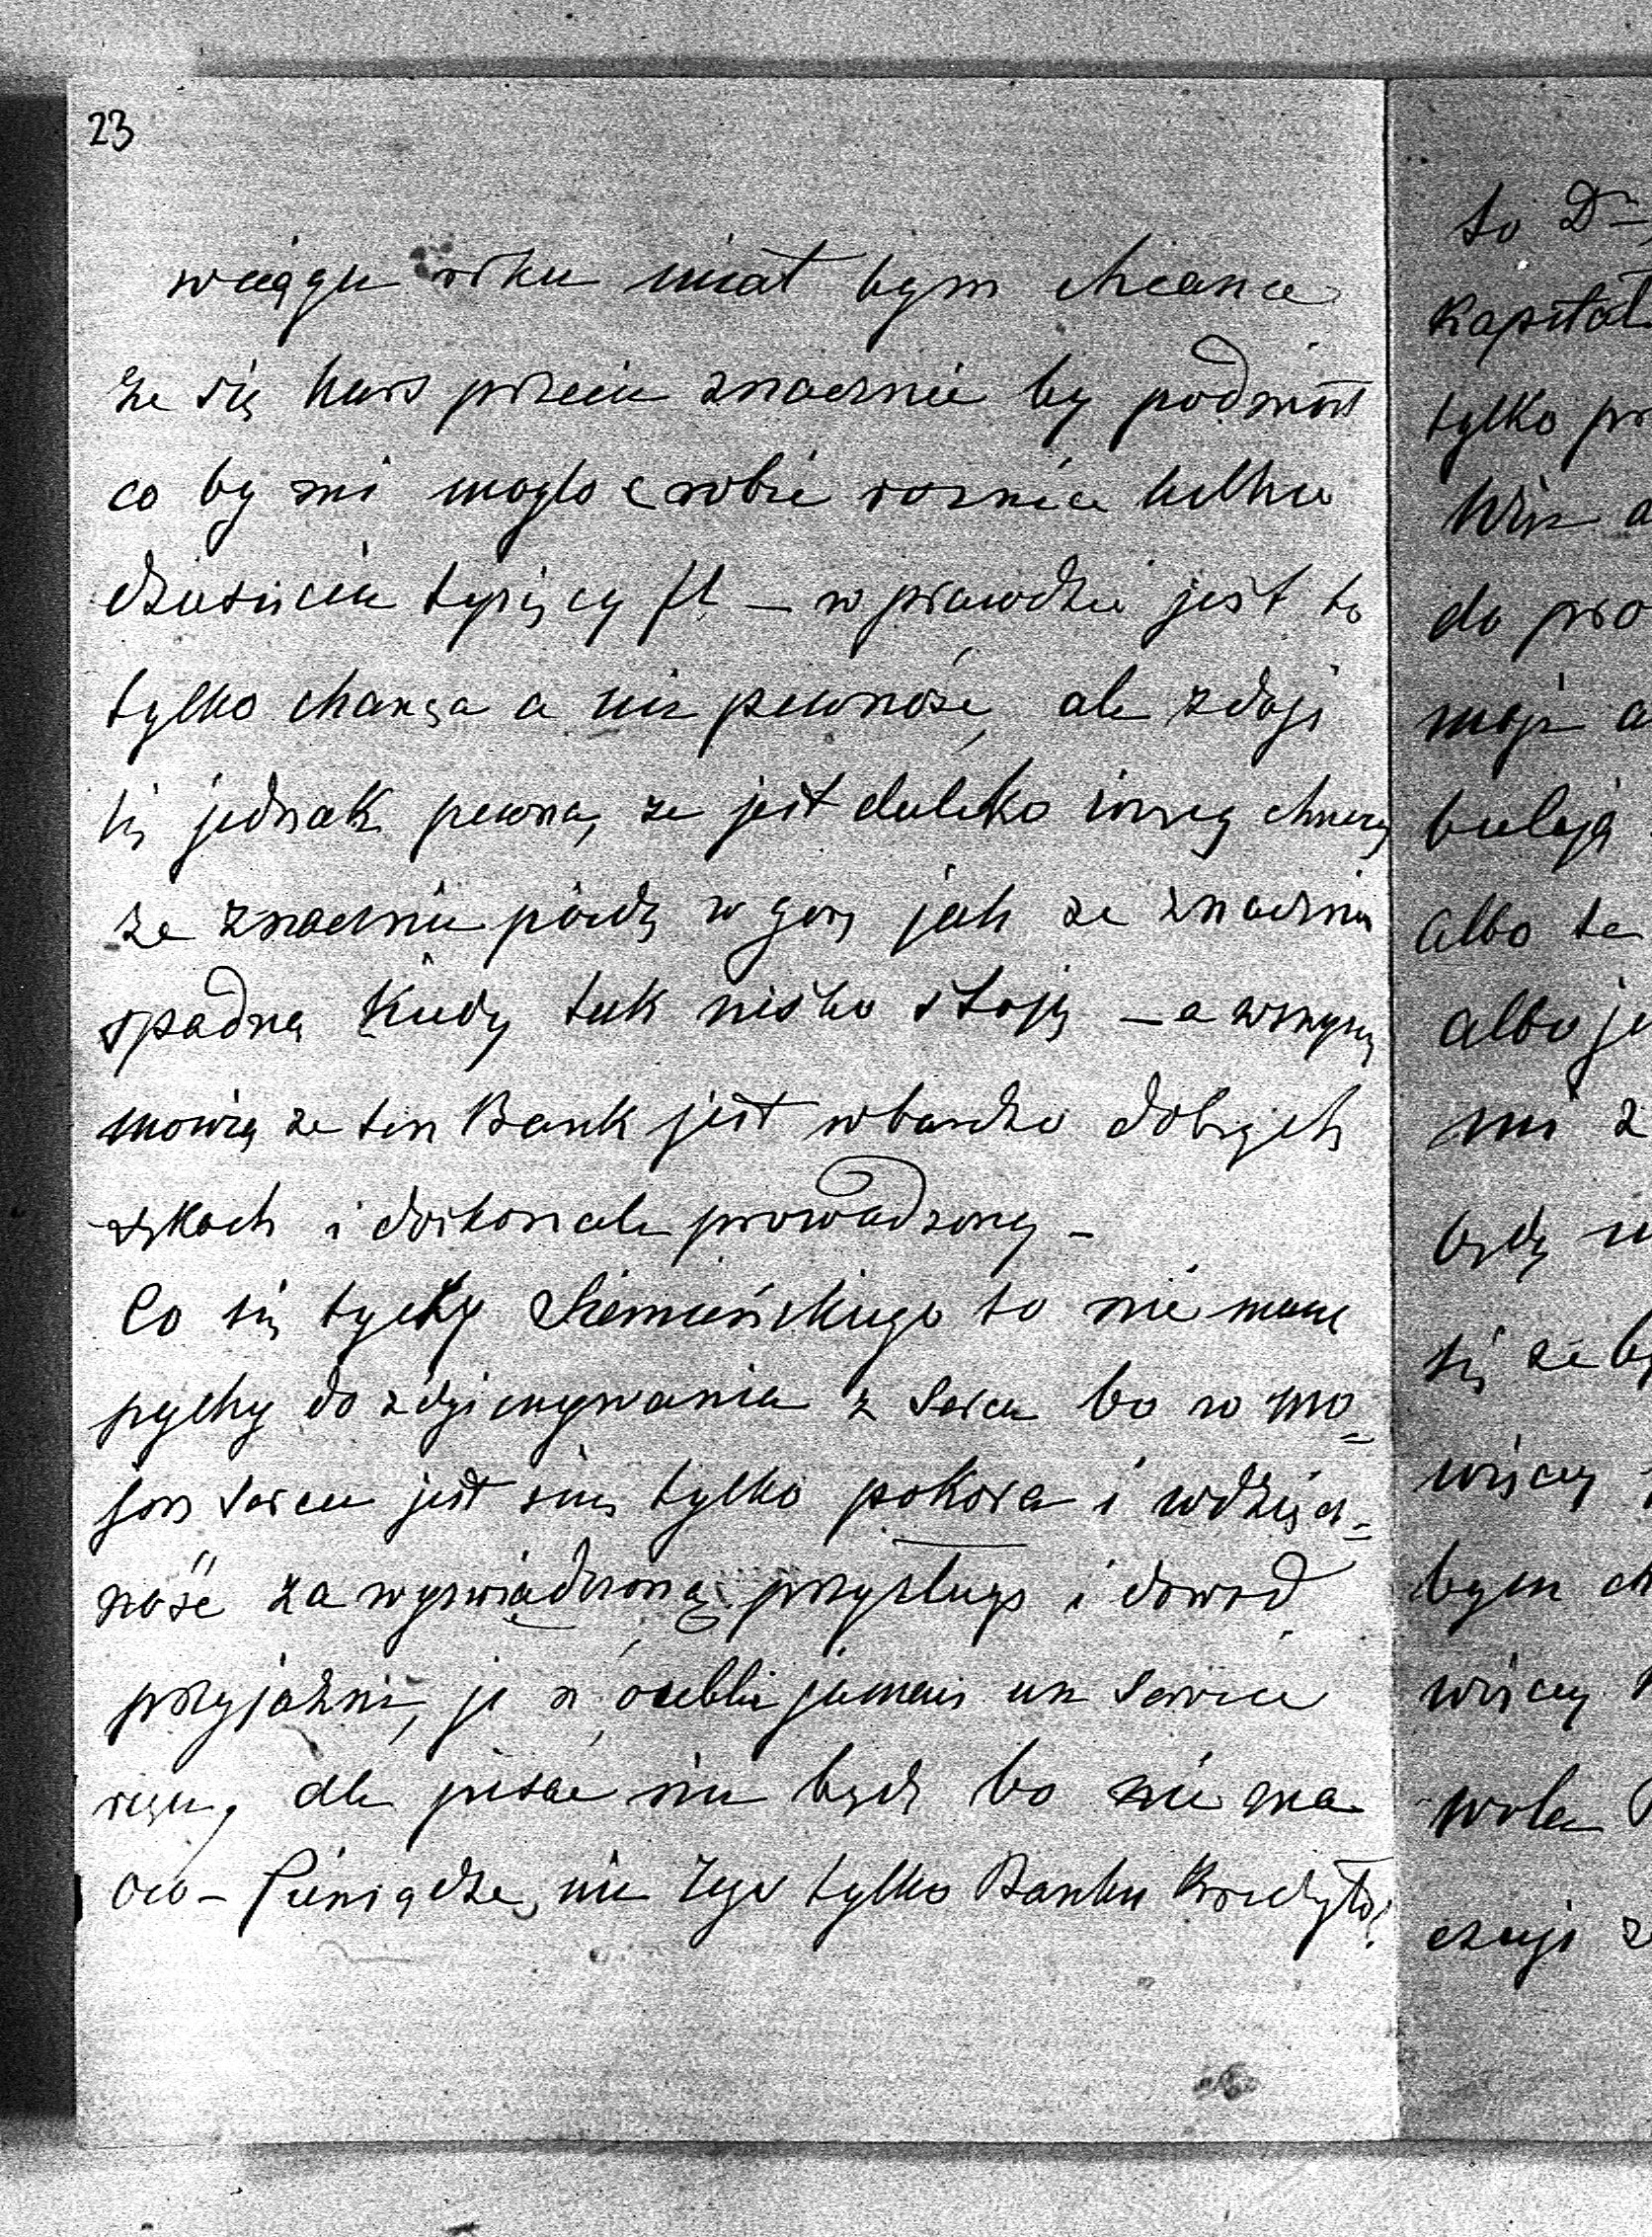 23
w ciągu roku miał bym chance
że się kurs przecie znacznie by podniósł
co by mi mogło zrobić roznice kilku
dziesięciu tysięcy fl – w prawdzie jest to
tylko chança a nie pewność, ale zdaje
się jednak pewną, ze jest daleko więcej chancy
że znacznie pójdą w górę jak ze znacznie
spadną Kiedy tak nisko stoją – a wszyscy
mowią ze ten Bank jest w bardzo dobrych
rękach i doskonale prowadzony –
Co się tycży Siemieńskiego to nie mam
pychy do zdyjmywania z serca bo w mo=
jem sercu jest sine tylko pokora i wdzięcz=
ność za wyswiadczoną przysługę i dowod
przyjaźni, je n'oublie jamais un service
reçu, ale pisac nie będę bo nie ma
oco – Pieniądze, nie żyje tylko Banku Kredyto:
to D
Kapitał
tylko
Wiesz
do
moje
albo
albo
mi
będę
się że
więcej
bym
więcej
wola
czuję